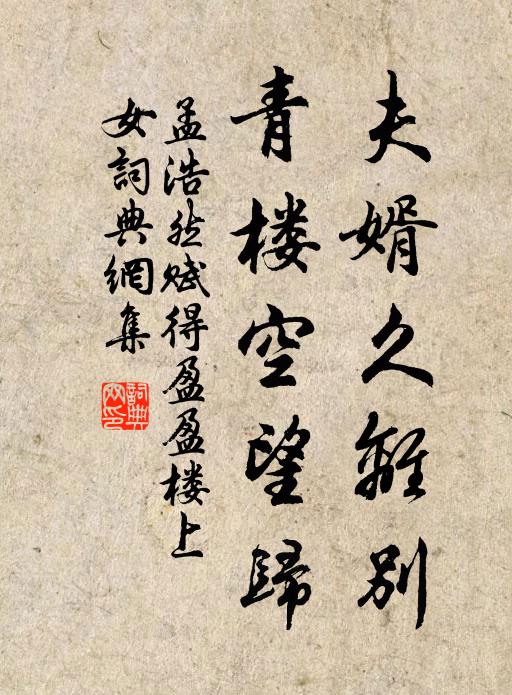 夫婿久離别
青楼空望歸
孟浩然赋得盈盈楼上
女詞典網集
詞典网印